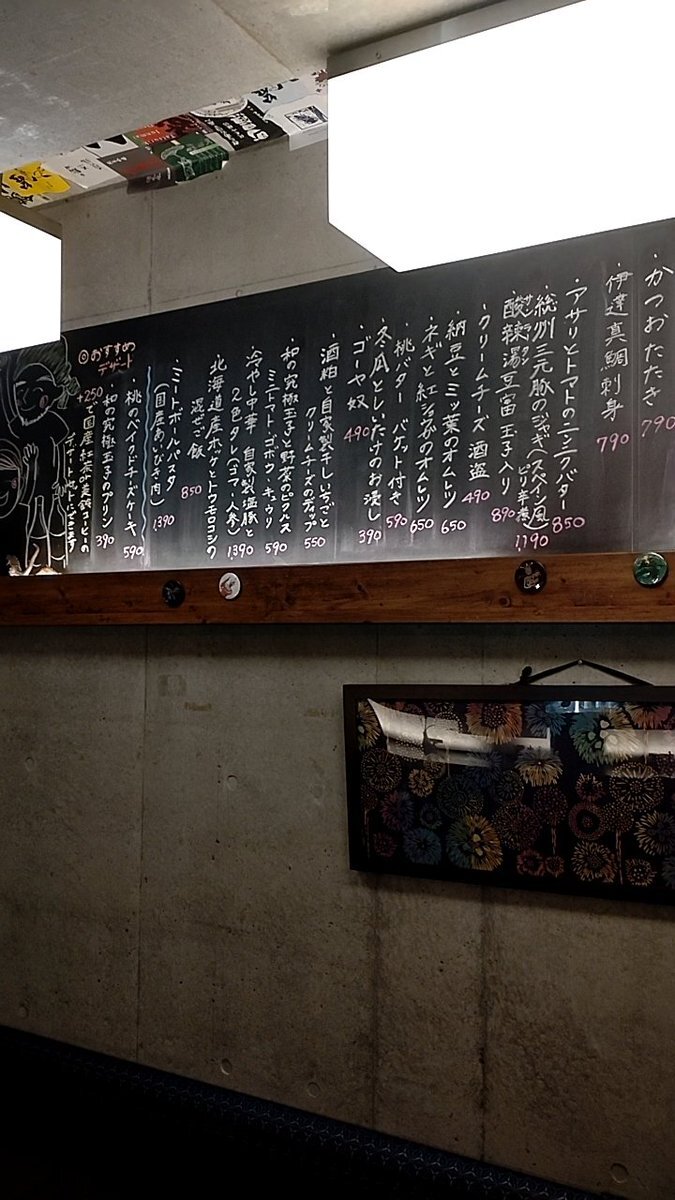 ・かつおたたき 790
・伊達真鯛刺身 790
・アサリとトマトのニンニクバター 850
・総州三元豚のジャギ(スペイン風ピリ辛煮) 1190
・酸辣湯豆富 玉子入り 890
・クリームチーズ 酒盗 490
・納豆とミツ葉のオムレツ 650
・ネギと紅しょうがのオムレツ 650
・桃バター バケット付き 590
・冬瓜としいたけのお浸し 390
・ゴーヤ奴 490
・酒粕と自家製干しいちじくと
クリームチーズのディップ 550
・和の究極玉子と野菜のピクルス
ミニトマト、ゴボウ、キュウリ 590
・冷やし中華 自家製塩豚と
2色タレ(ゴマ・人参) 1390
・北海道産ホッケとトウモロコシの
混ぜご飯 850
・ミートボールパスタ
(国産あいびき肉) 1390
◎おすすめ
デザート
・桃のベイクドチーズケーキ 590
・和の究極玉子のプリン 390
+250で国産紅茶or
デザートセットにできます